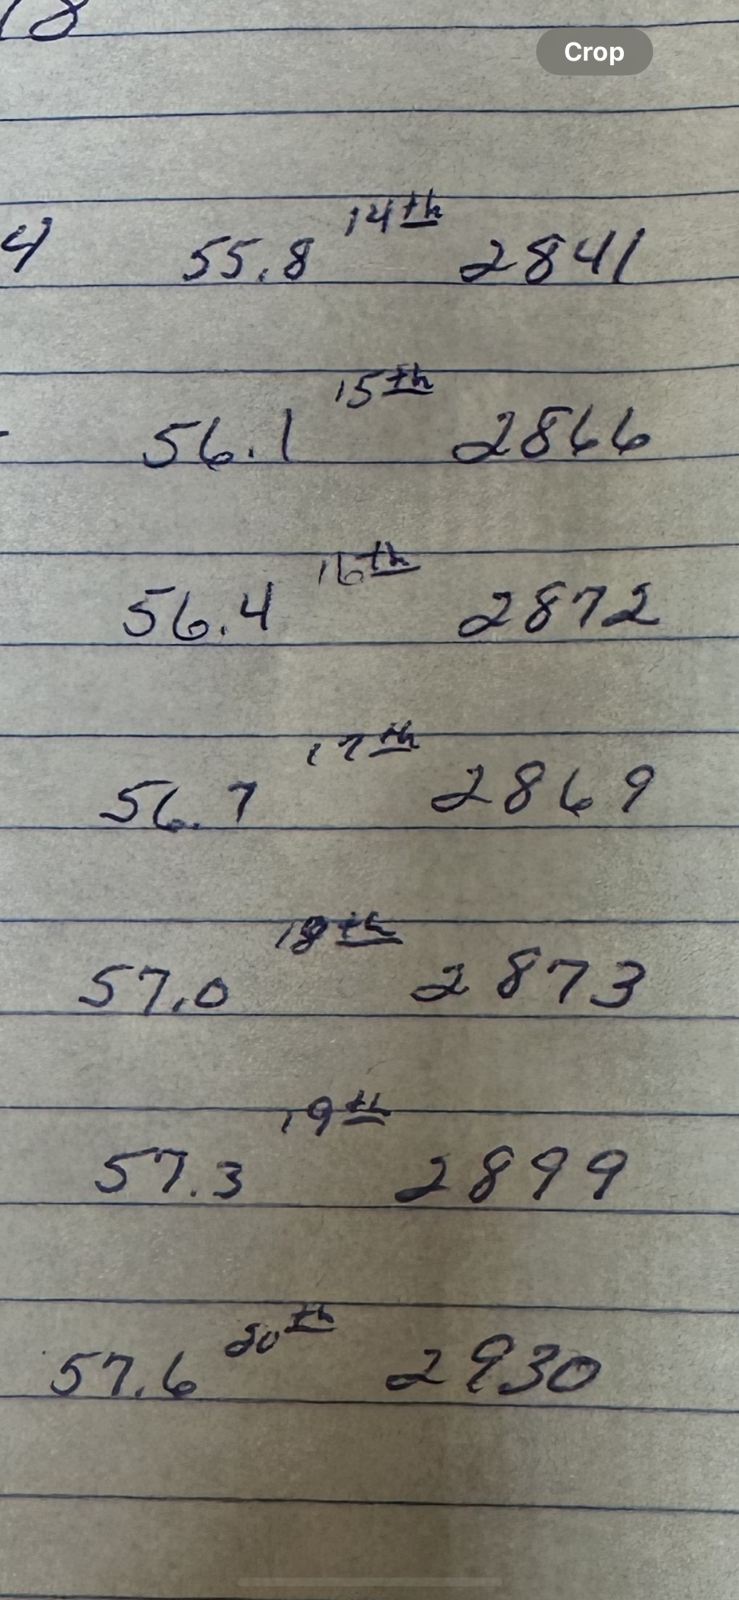 18
Crop
4 55.8 14th 2841
56.1 15th 2866
56.4 16th 2872
56.7 17th 2869
57.0 18th 2873
57.3 19th 2899
57.6 20th 2930